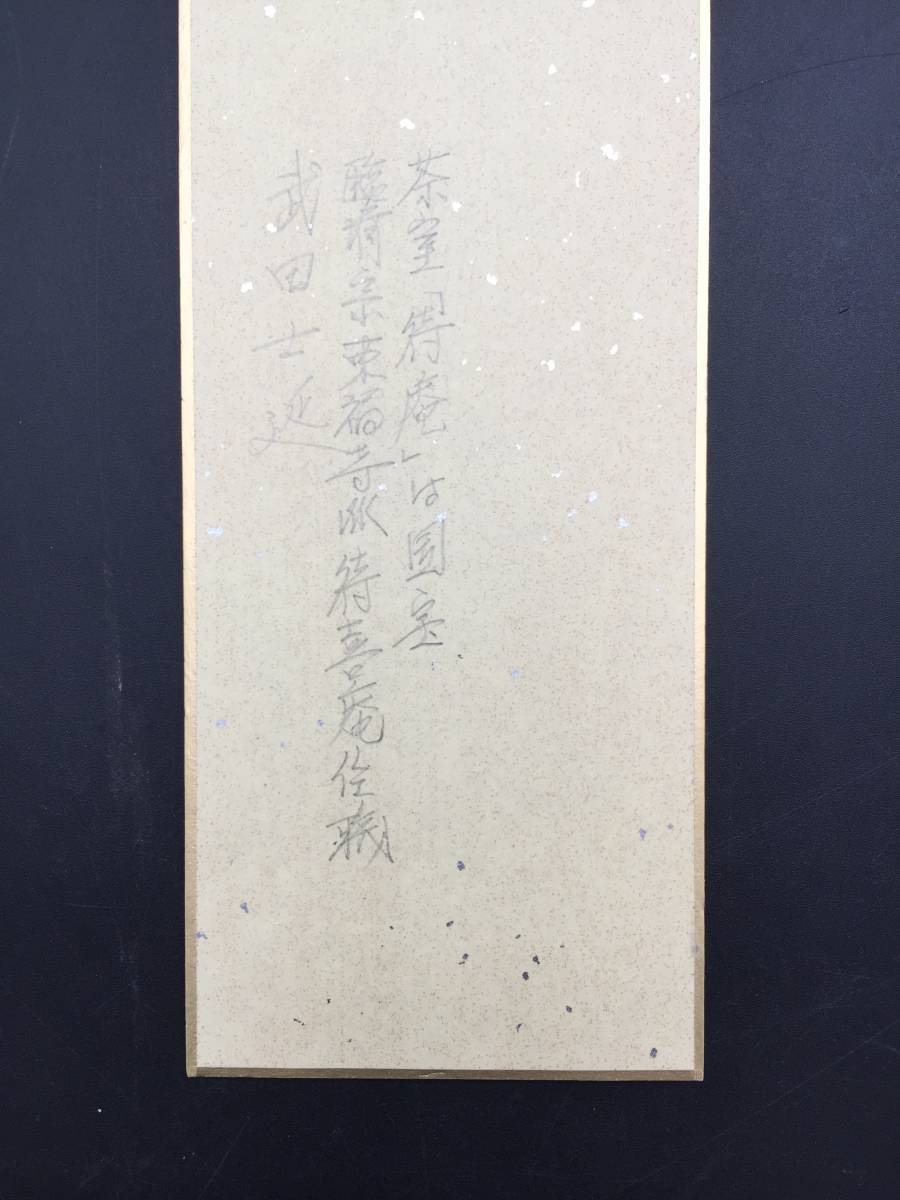 茶室「待庵」は国宝
臨済宗東福寺派待喜庵住職
武田士延